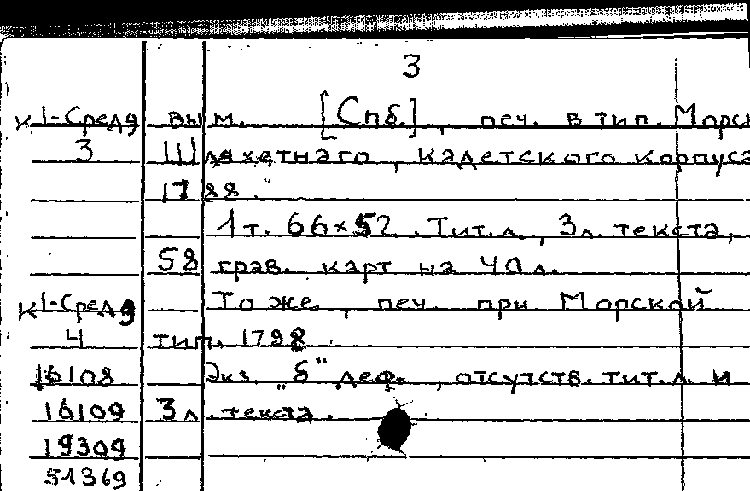 3
К 1-Средз вым. [Спб.], печ. в тип. Морск
3 Шляхетнаго, кадетского корпуса
1788.
1 т. 66×52. Тит. л., 3 л. текста,
58 грав. карт на 40 л.
К 1-Средз То же, печ. при Морской
4 тип. 1798.
16108 Экз. "б" деф., отсутств. тит. л. и
16109 3 л. текста.
19309
51369